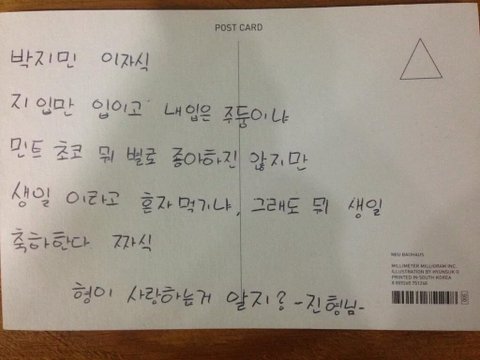 POST CARD
박지민 이자식
지 입만 입이고 내입은 주둥이냐
민트 초코 뭐 별로 좋아하진 않지만
생일 이라고 혼자 먹기냐, 그래도 뭐 생일
축하한다 짜식
형이 사랑하는거 알지? -진형님-
NEU BAUHAUS
MILLIMETER MILLIGRAM INC.
ILLUSTRATION BY HYONSUK O
PRINTED IN SOUTH KOREA